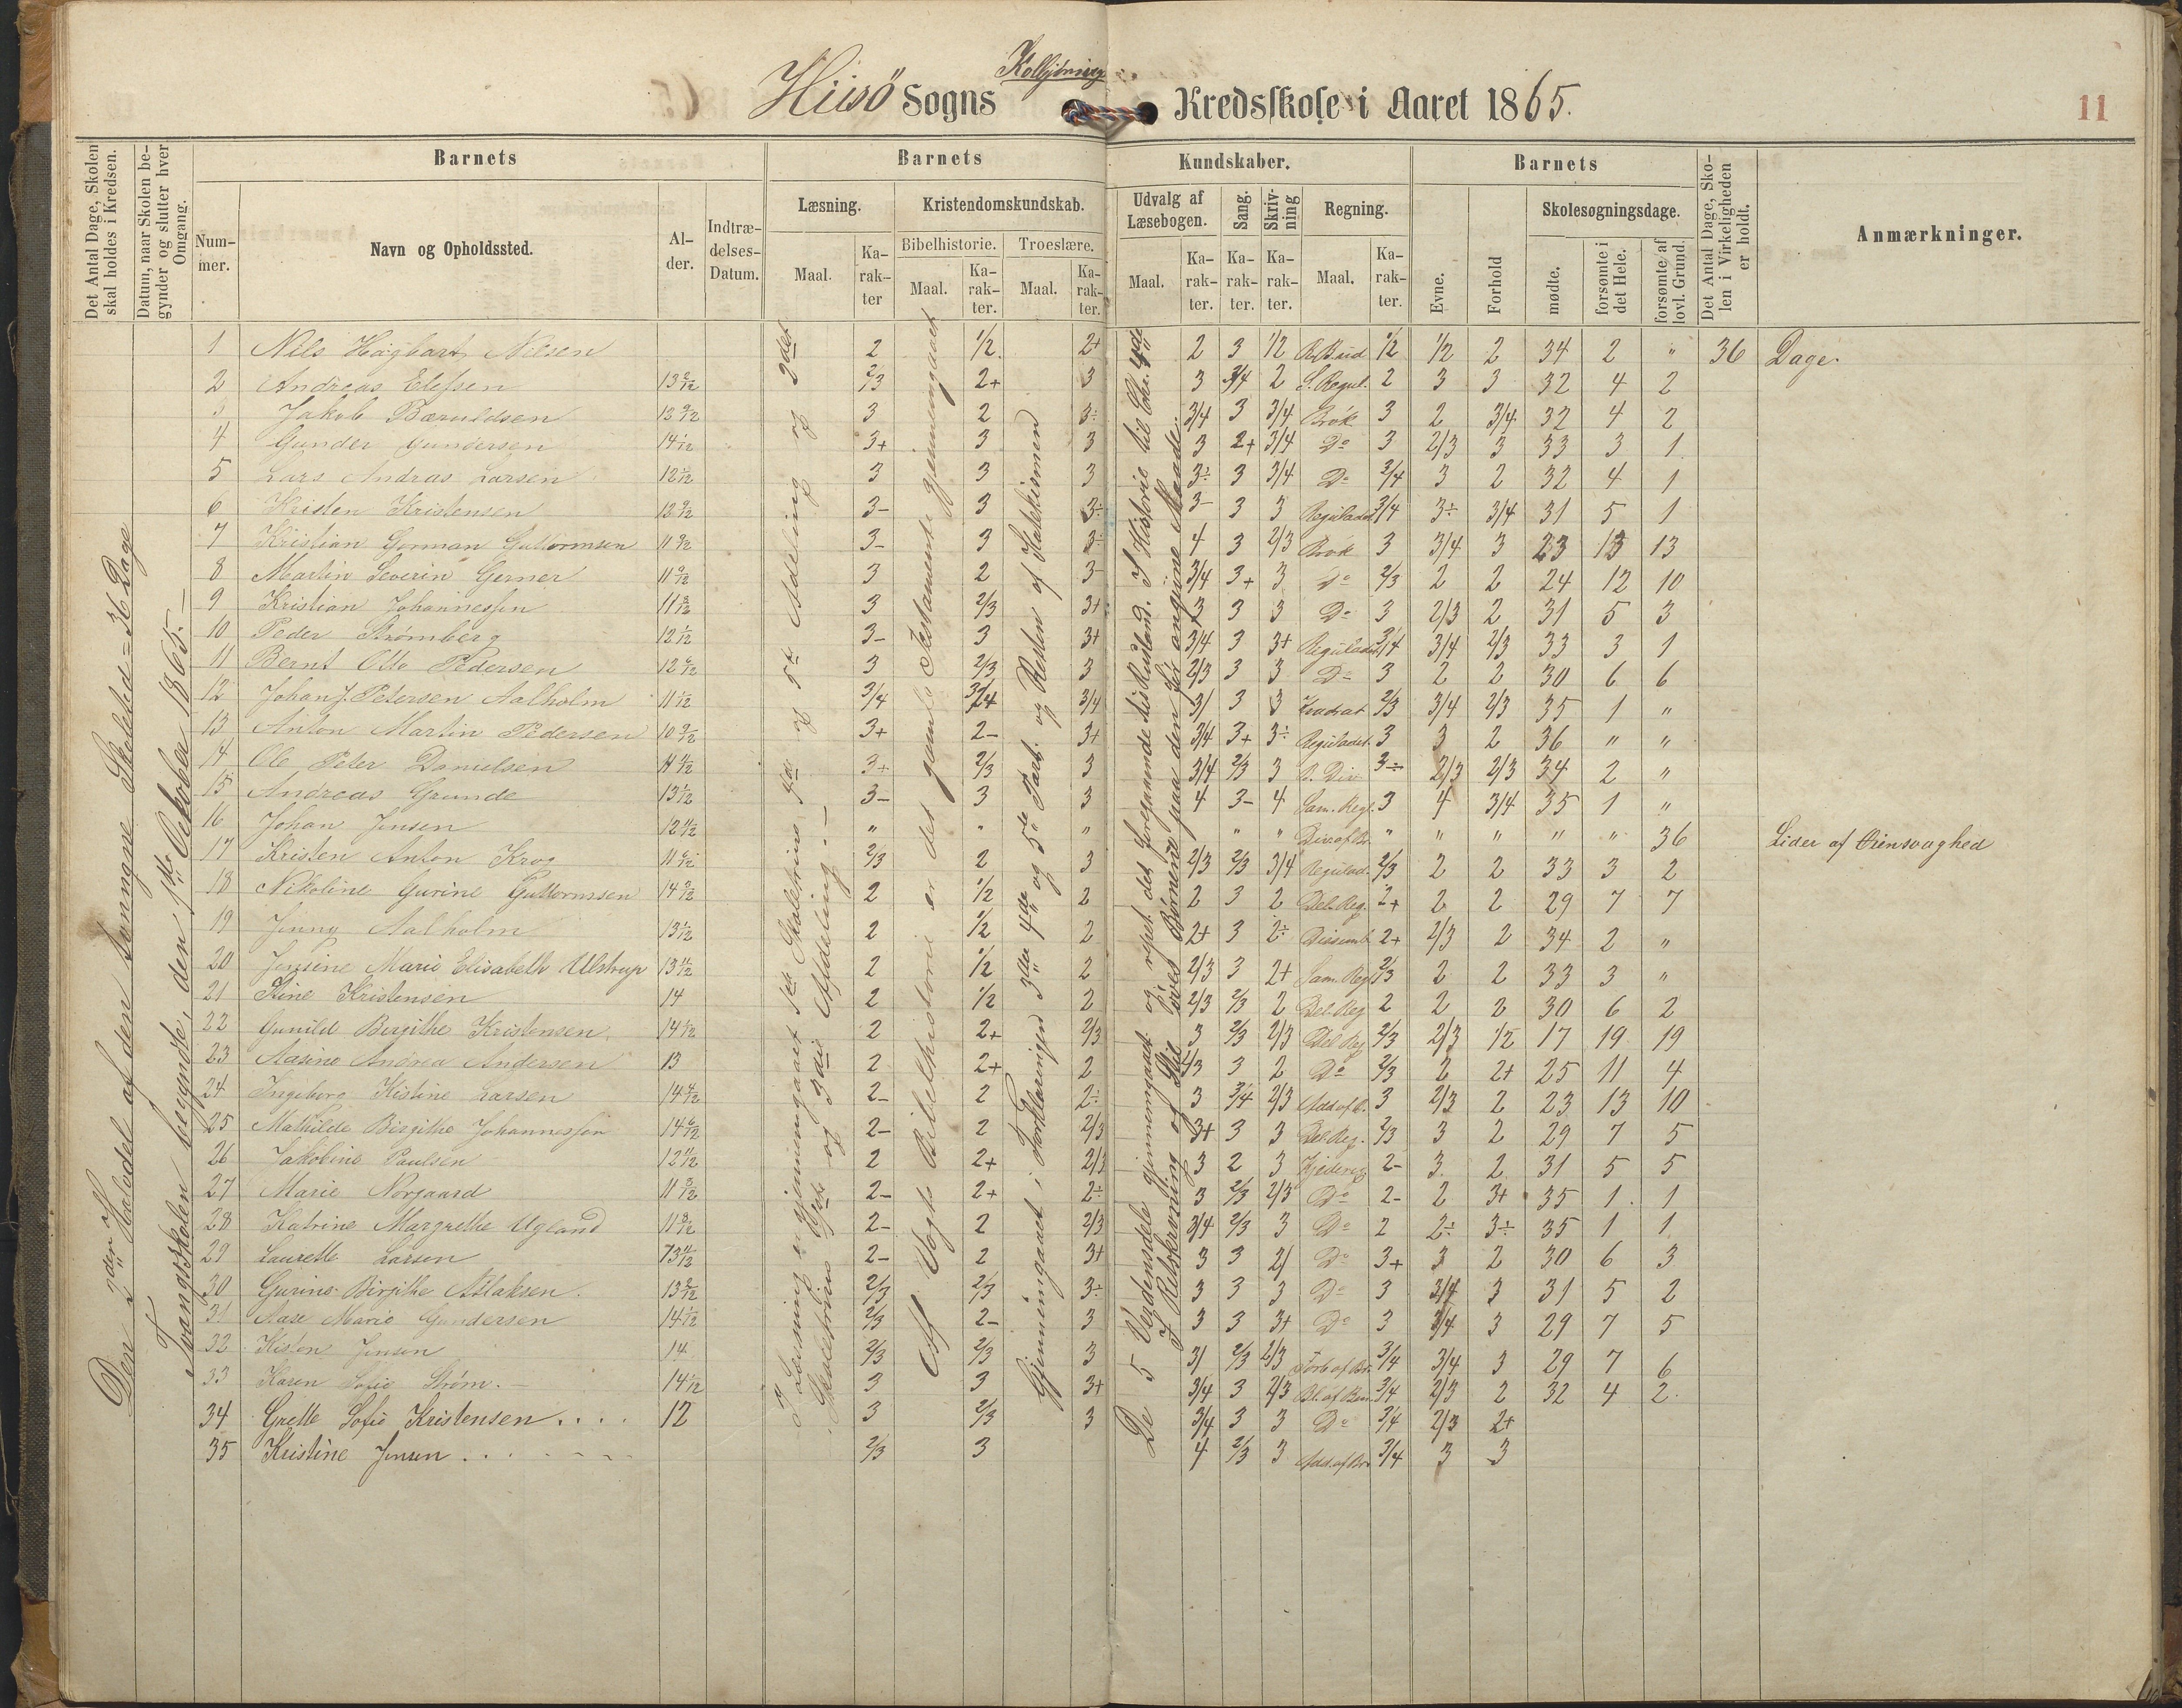 Kolbjörnsvig
Hiisö Sogns Kredsskole i Aaret 1865.
11
Det Antal Dage, Skolen skal holdes i Kredsen.
Datum, naar Skolen begynder og slutter hver Omgang.
Barnets
Nummer.
Navn og Opholdssted.
Alder.
Indtrædelses-Datum.
Barnets Kundskaber.
Læsning.
Maal.
Karakter
Kristendomskundskab.
Bibelhistorie.
Maal.
Karakter.
Troeslære.
Maal.
Karakter.
Udvalg af Læsebogen.
Maal.
Karakter.
Sang.
Karakter.
Skrivning
Karakter.
Regning.
Maal.
Karakter.
Barnets
Evne.
Forhold
Skolesøgningsdage.
mødte.
forsømte i det Hele.
forsømte af lovl. Grund.
Det Antal Dage, Skolen i Virkeligheden er holdt.
Anmærkninger.
Den 2den Halvdel af den tvungne Skoletid = 36 Dage
Tvangsskolen begyndte, den 1ste Oktober 1865. —
I Læsning er gjennemgaaet 1ste Skoletrins 4de og 5te Afdeling og 2det
Skoletrins 1ste og 2den Afdeling. —
Af Vogts Bibelhistorie er det gamle Testamente gjennemgaaet
Gjennemgaaet i Forklaringen 3die 4de og 5te Part. og Resten af Katekismen
De 5 Verdensdele gjennemgaaet og repet. det foregaaende til Rusland. I Historie til Chr. 4de
I Retskrivning og Stil øves Børnene paa den for angivne Maade.
1 Nils Hagbart Nilsen 2 1/2. 2+ 2 3 1/2 R. Brud 1/2 1/2 2 34 2 " 36 Dage.
2 Andreas Elefsen 13 2/12 2/3 2+ 3 3 3/4 2 S. Regul. 2 3 3 32 4 2
3 Jakob Bæruldsen 12 9/12 3 2 3÷ 3/4 3 3/4 Brøk 3 2 3/4 32 4 2
4 Gunder Gundersen 14 1/12 3+ 3 3 3 2+ 3/4 Do 3 2/3 3 33 3 1
5 Lars Andras Larsen 12 1/12 3 3 3 3÷ 3 3/4 Do 3/4 3 2 32 4 1
6 Kristen Kristensen 12 9/12 3- 3 3÷ 3- 3 3 Reguladet. 3/4 3÷ 3/4 31 5 1
7 Kristian Gorman Guttormsen 11 9/12 3- 3 3÷ 4 3 2/3 Brøk 3 3/4 3 23 13 13
8 Martin Severin Gerner 11 9/12 3 2 3- 3/4 3+ 3 Do 2/3 2 2 24 12 10
9 Kristian Johannessen 11 8/12 3 2/3 3+ 3 3 3 Do 3 2/3 2 31 5 3
10 Peder Strømberg 12 1/12 3- 3 3+ 3/4 3 3+ Reguladet. 3/4 3/4 2/3 33 3 1
11 Bernt Otto Pedersen 12 6/12 3 2/3 3 2/3 3 3 Do 3 2 2 30 6 6
12 Johan J. Petersen Aalholm 11 1/12 3/4 3/4 3/4 3/ 3 3 Kvadrat 2/3 3/4 2/3 35 1 "
13 Anton Martin Pedersen 10 9/12 3+ 2- 3+ 3/4 3+ 3÷ Reguladet. 3 3 2 36 " "
14 Ole Peter Danielsen 11 4/12 3+ 2/3 3 3/4 2/3 3 S. Div. 3÷ 2/3 2/3 34 2 "
15 Andreas Grunde 13 1/12 3- 3 3 4 3- 4 Sam. Regl. 3 4 3/4 35 1 "
16 Johan Jensen 12 11/12 " " " " " Div. af Br. " " " " " 36 Lider af Øiensvaghed
17 Kristen Anton Krog 11 6/12 2/3 2 3 2/3 2/3 3/4 Regulad. 2/3 2 2 33 3 2
18 Nikoline Gurine Guttormsen 14 3/12 2 1/2 2 2 3 2 Del. Reg. 2+ 2 2 29 7 7
19 Jenny Aalholm 13 1/12 2 1/2 2 2+ 3 2÷ 2+ 2/3 2 34 2 "
20 Jensine Marie Elisabeth Ulstrup 13 4/12 2 1/2 2 2/3 3 2+ Sam. Reg. 2/3 2 2 33 3 "
21 Stine Kristensen 14 2 1/2 2 2/3 2/3 2 Del. Reg. 2 2 2 30 6 2
22 Gunild Birgithe Kristensen. 14 1/12 2 2+ 2/3 3 2/3 2/3 Del. Reg 2/3 2/3 1/2 17 19 19
23 Aasine Andrea Andersen 13 2 2+ 2 2/3 3 2 Do 2/3 2 2+ 25 11 4
24 Ingeborg Kistine Larsen 14 4/12 2- 2 2÷ 3 3/4 2/3 Add. af B. 3 2/3 2 23 13 10
25 Mathilde Birgithe Johannessen 14 6/12 2- 2 2/3 3+ 3 3 Del. Reg. 2/3 3 2 29 7 5
26 Jakobine Paulsen 12 11/12 2 2+ 2/3 3 2 3 Kjedereg 2- 3 2 31 5 5
27 Marie Norgaard 11 3/12 2- 2+ 2÷ 3 2/3 2/3 Do 2- 2 3+ 35 1 1
28 Katrine Margrethe Ugland 11 8/12 2- 2 2/3 3/4 2/3 3 Do 2 2÷ 3÷ 35 1 1
29 Laurette Larsen 13 11/12 2- 2 3+ 3 3 2/ Do 3+ 3 2 30 6 3
30 Gurine Birgithe Atlaksen. 13 2/12 2/3 2/3 3÷ 3 3 3 Do 3 3/4 3 31 5 2
31 Aase Marie Gundersen 14 1/12 2/3 2- 3 3 3 3+ Do 3 3/4 3 29 7 5
32 Jensen 14 2/3 2/3 3 3/ 2/3 2/3 Forb. af Br. 3/4 3/4 3 29 7 6
33 Karen Sofie Strøm. — 14 1/12 3 3 3+ 3/4 3 2/3 3/4 2/3 2 32 4 2.
34 Grette Sofie Kristensen . . . . 12 3 2/3 3 3/4 3 3 Do 3/4 2/3 2+
35 Kristine Jensen . . . 2/3 3 4 2/3 3 Add. af Br. 3/4 3 3